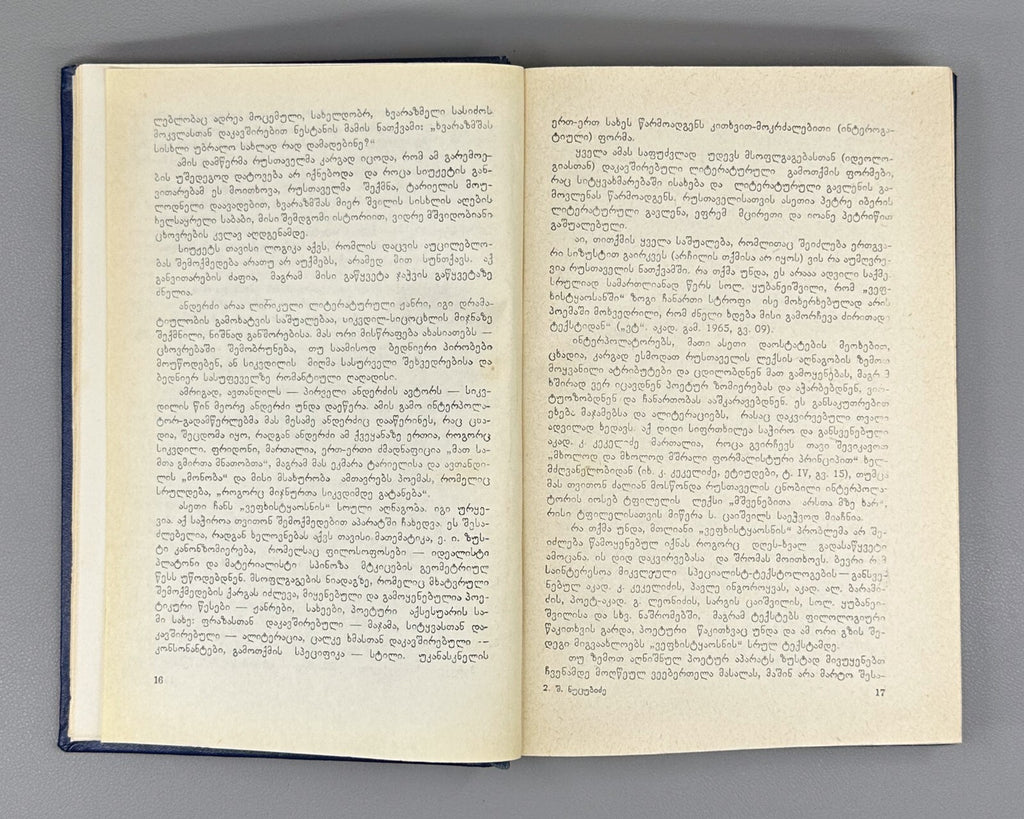 ლებლობაც ადრეა მოცემული, სახელდობრ, ხვარაზმელი სასიძოს
მოკვლასთან დაკავშირებით ნესტანის მამის ნათქვამი: „ხვარაზმშას
სისხლი უბრალო სახლად რად დამადებინე?“
ამის დამწერმა რუსთაველმა კარგად იცოდა, რომ ამ გარემოე-
ბის უშედეგოდ დატოვება არ იქნებოდა და როცა სიუჟეტის გან-
ვითარებამ ეს მოითხოვა, რუსთაველმა შექმნა, ტარიელის მოუ-
ლოდნელი დაავადებით, ხვარაზმშას მიერ შვილის სისხლის აღების
ხელსაყრელი საბაბი, მისი შემდგომი ისტორიით, ვიდრე მშვიდობიანი
ცხოვრების კვლავ აღდგენამდე.
სიუჟეტს თავისი ლოგიკა აქვს, რომლის დაცვის აუცილებლო-
ბას შემოქმედება არათუ არ აუქმებს, არამედ მით სუნთქავს. აქ
განვითარების ძაფია, მაგრამ მისი გაწყვეტა ჯაჭვის გაწყვეტაზე
ძნელია.
ანდერძი არაა ლირიკული ლიტერატურული ჟანრი, იგი დრამა-
ტიულობის გამოხატვის საშუალებაა, სიკვდილ-სიცოცხლის მიჯნაზე
შექმნილი, ნიშნად განშორებისა. მას ორი მისწრაფება ახასიათებს —
ცხოვრებაში შემობრუნება, თუ საამისოდ ბედნიერი პირობები
მოუწოდებენ, ან სიკვდილის მიღმა სასურველი შეხვედრებისა და
ბედნიერ სასუფეველზე რომანტიული ღაღადისი.
ამრიგად, ავთანდილს — პირველი ანდერძის ავტორს — სიკვ-
დილის წინ მეორე ანდერძი უნდა დაეწერა. ამის გამო ინტერპოლა-
ტორ-გადამწერლებმა მას მესამე ანდერძიც დააწერინეს, რაც ცხა-
დია, შეცდომა იყო, რადგან ანდერძი ამ ქვეყანაზე ერთია, როგორც
სიკვდილი. ფრიდონი, მართალია, ერთ-ერთი ძმადნაფიცია „მათ სა-
მთა გმირთა მნათობთა“, მაგრამ მას ეკმარა ტარიელისა და ავთანდი-
ლის „მონობა“ და მისი მსახურობა ამთავრებს პოემას, რომელიც
სრულდება, „როგორც მიჯნურთა სიკვდიმდე გატანება“.
ასეთი ჩანს „ვეფხისტყაოსნის“ სრული აღნაგობა. იგი ურყე-
ვია. აქ საჭიროა თვითონ შემოქმედებით აპარატში ჩახედვა. ეს შესა-
ძლებელია, რადგან ხელოვნებას აქვს თავისი მათემატიკა, ე. ი. ზუს-
ტი კანონზომიერება, რომელსაც ფილოსოფოსები — იდეალისტი
პლატონი და მატერიალისტი სპინოზა მტკიცების გეომეტრიულ
წესს უწოდებდნენ. მსოფლგაგების ნიადაგზე, რომელიც მხატვრული
შემოქმედების ქარგას იძლევა, მიყენებული და გამოყენებულია პოე-
ტიკური წესები — ჟანრები, სახეები, პოეტური აქსესუარის სა-
მი სახე: ფრაზასთან დაკავშირებული — მაჯამა, სიტყვასთან და-
კავშირებული — ალიტერაცია, ცალკე ხმასთან დაკავშირებული —
კონსონანტები, გამოთქმის სპეციფიკა — სტილი. უკანასკნელის
16
ერთ-ერთ სახეს წარმოადგენს კითხვით-მოკრძალებითი (ინტეროგა-
ტიული) ფორმა.
ყველა ამას საფუძვლად უდევს მსოფლგაგებასთან (იდეოლო-
გიასთან) დაკავშირებული ლიტერატურული გამოთქმის ფორმები,
რაც სიტყვახმარებაში ისახება და ლიტერატურული გავლენის გა-
მოვლენას წარმოადგენს, რუსთაველისათვის ასეთია პეტრე იბერის
ლიტერატურული გავლენა, ეფრემ მცირეთი და იოანე პეტრიწით
გაშუალებული.
აი, თითქმის ყველა საშუალება, რომლითაც შეიძლება ერთგვა-
რი სიზუსტით გაირკვეს (არჩილის თქმისა არ იყოს) ვის რა აუმღვრე-
ვია რუსთაველის ნათქვამში. რა თქმა უნდა, ეს არაა ადვილი საქმე.
სრულიად სამართლიანად წერს სოლ. ყუბანეიშვილი, რომ „ვეფ-
ხისტყაოსანში“ ზოგი ჩანართი სტროფი ისე მოხერხებულად არის
პოემაში მოხვედრილი, რომ ძნელი ხდება მისი გამორჩევა ძირითადი
ტექსტიდან“ („ვტ“. აკად. გამ. 1965, გვ. 09).
ინტერპოლატორებს, მათი ასეთი დაოსტატების მეოხებით,
ცხადია, კარგად ესმოდათ რუსთაველის ლექსის აღნაგობის ზემოთ
მოყვანილი ატრიბუტები და ცდილობდნენ მათ გამოყენებას, მაგრამ
ხშირად ვერ იცავდნენ პოეტურ ზომიერებას და აჭარბებდნენ,
ტუოზობდნენ და ჩანართობას ააშკარავებდნენ. ეს განსაკუთრებით
ეხება მაჯამებსა და ალიტერაციებს, რასაც დაკვირვებული თვალი
ადვილად ხედავს. აქ დიდი სიფრთხილეა საჭირო და განსვენებული
აკად. კ. კეკელიძე მართალია, როცა გვირჩევს თავი შევიკავოთ
„მხოლოდ და მხოლოდ მშრალი ფორმალისტური პრინციპით“ ხელ-
მძღვანელობიდან (იხ. კ. კეკელიძე, ეტიუდები, ტ. IV, გვ. 15), თუმცა
მას თვითონ ძალიან მოსწონდა რუსთაველის ცნობილი ინტერპოლა-
ტორის იოსებ ტფილელის ლექსი „მშვენებითა არსთა მზე ხარ“,
რისი ტფილელისათვის მიწერა ს. ცაიშვილს საეჭვოდ მიაჩნია.
რა თქმა უნდა, მთლიანი „ვეფხისტყაოსნის“ პრობლემა არ შე-
იძლება წამოყენებულ იქნას როგორც დღეს-ხვალ გადასაწყვეტი
ამოცანა. ის დიდ დაკვირვებასა და შრომას მოითხოვს. ბევრი რამ
საინტერესოა მიკვლეული სპეციალისტ-ტექსტოლოგების — განსვე-
ნებულ აკად. კ. კეკელიძის, პავლე ინგოროყვას, აკად. ალ. ბარამი-
ძის, პოეტ-აკად. გ. ლეონიძის, სარგის ცაიშვილის, სოლ. ყუბანეი-
შვილისა და სხვ. ნაშრომებში, მაგრამ ტექსტებს ფილოლოგიური
წაკითხვის გარდა, პოეტური წაკითხვაც უნდა და ამ ორი გზის შე-
დეგი მიგვაახლოებს „ვეფხისტყაოსნის“ სრულ ტექსტამდე.
თუ ზემოთ აღნიშნულ პოეტურ აპარატს ზუსტად მივუყენებთ
ჩვენამდე მოღწეულ ვეებერთელა მასალას, მაშინ არა მარტო შესა-
2. შ. ნუცუბიძე
17